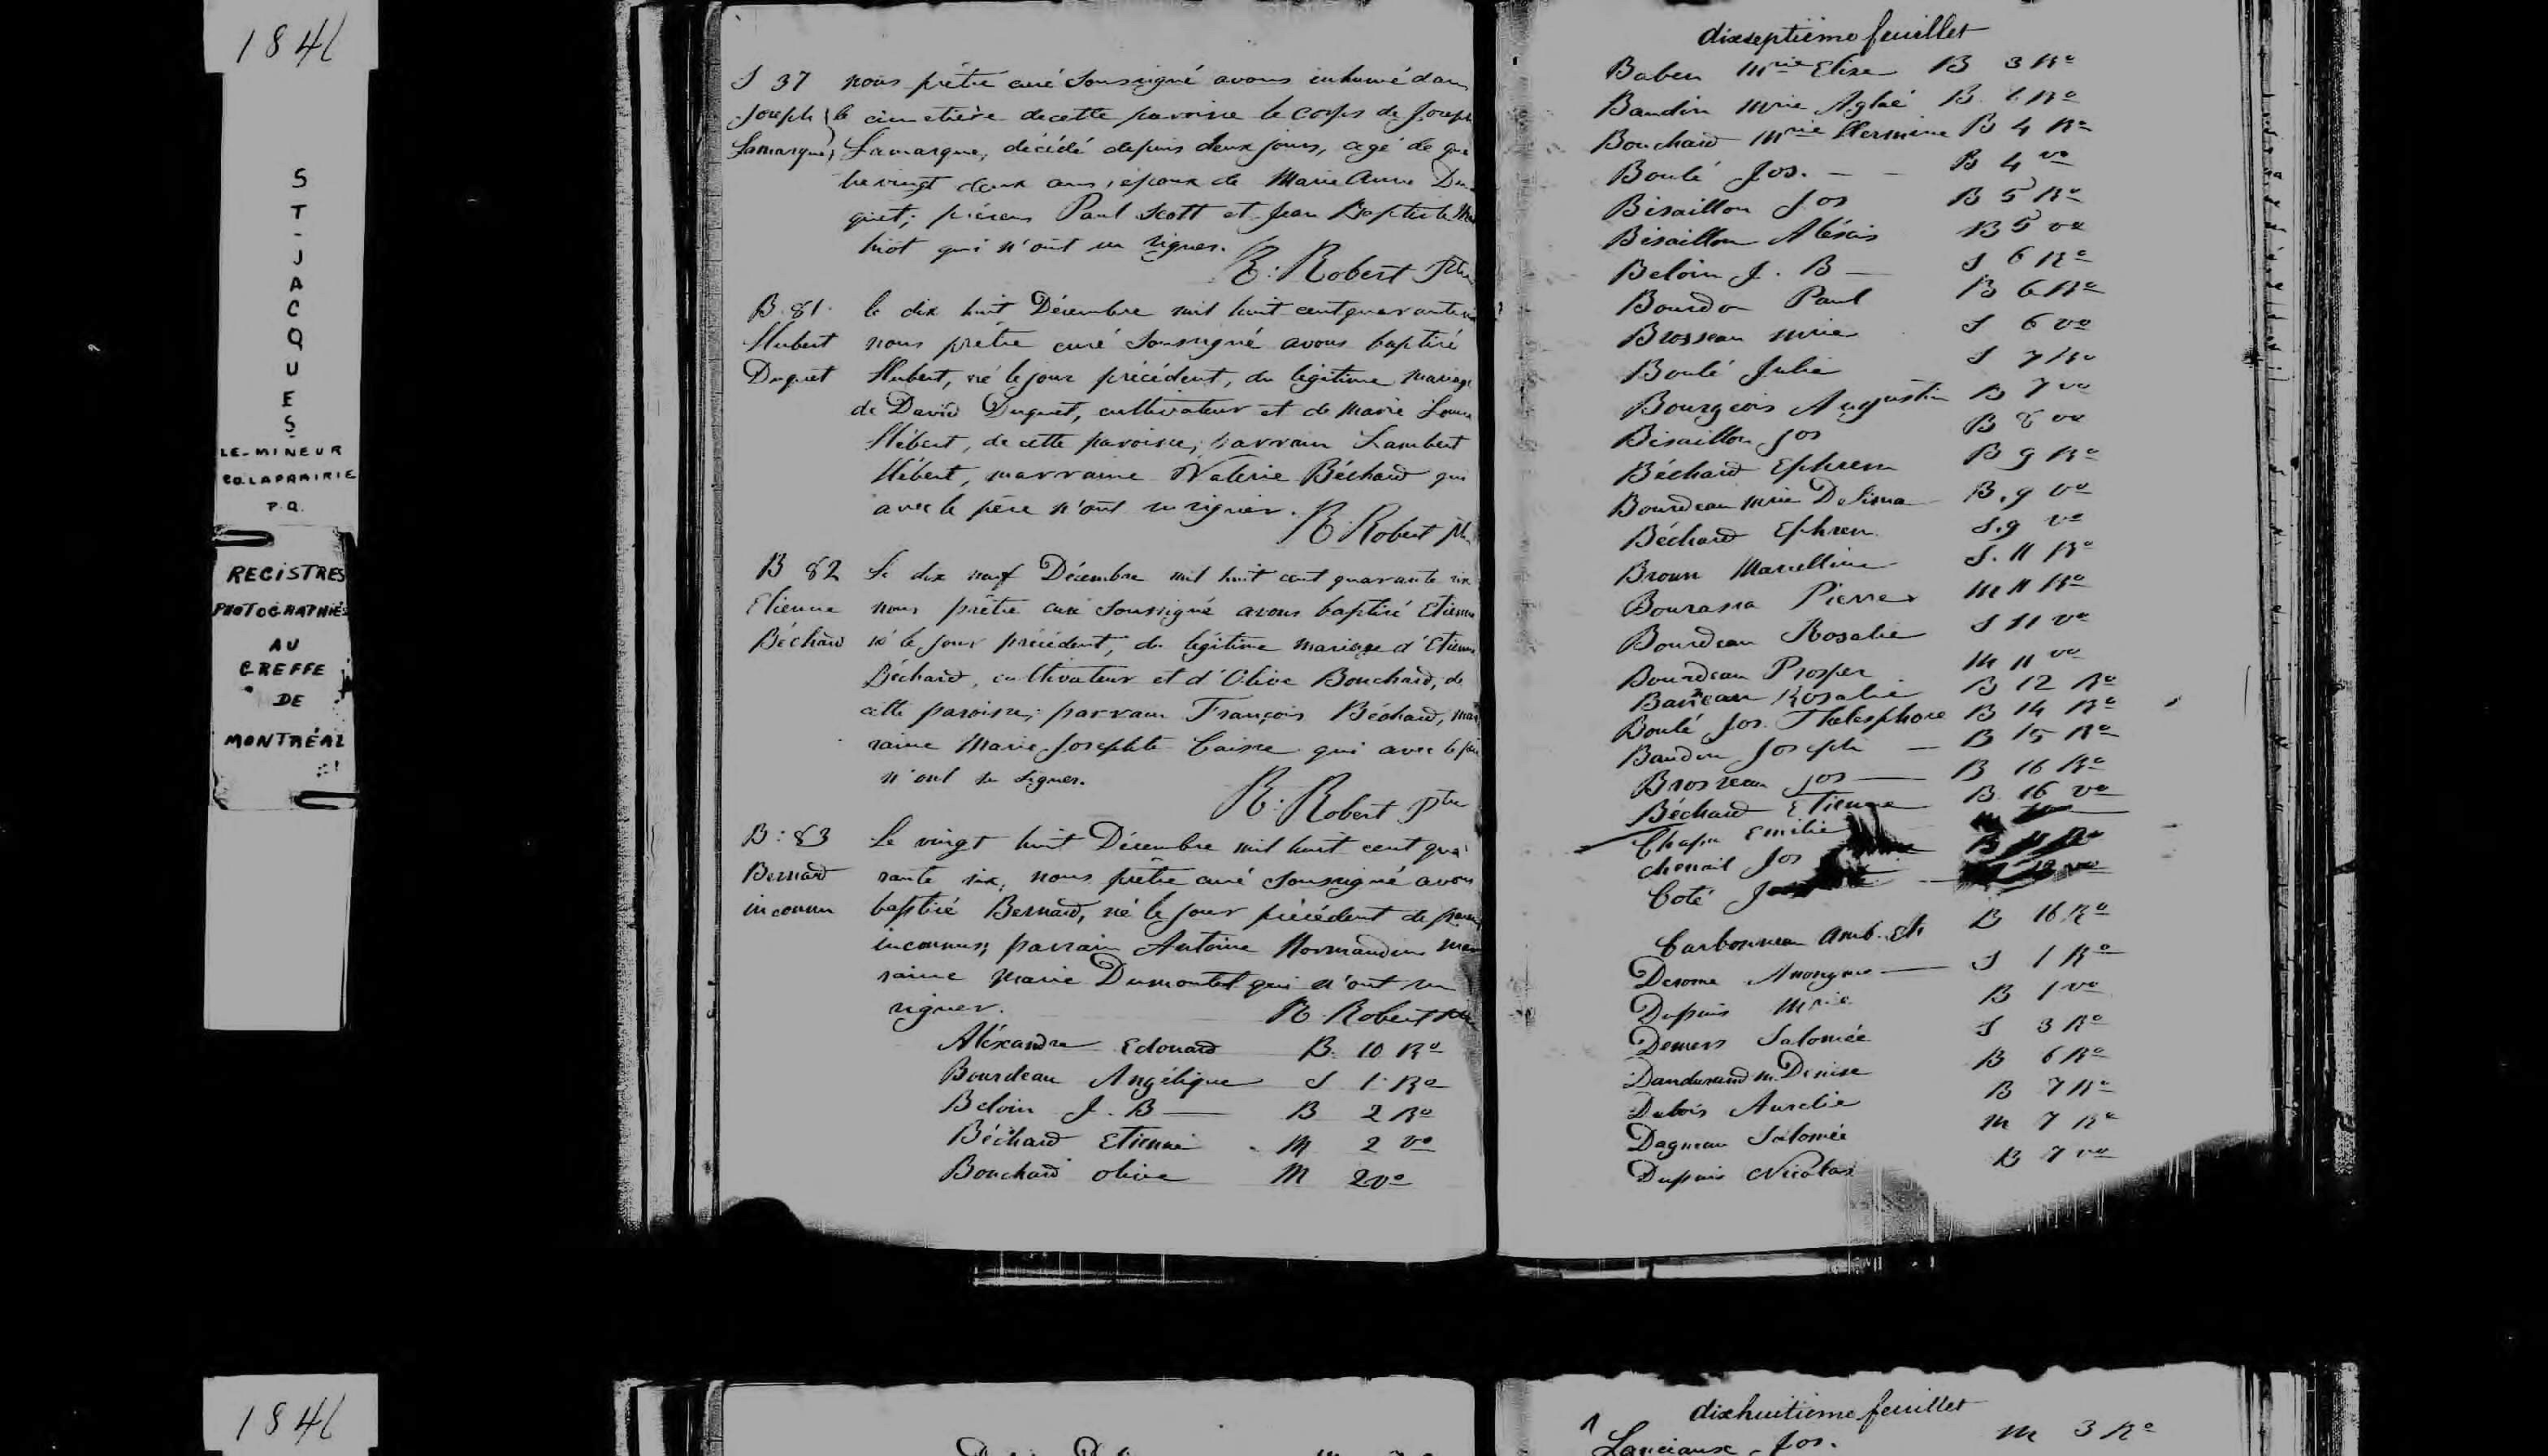 1846
S
T
-
J
A
C
Q
U
E
S
LE-MINEUR
CO. LAPRAIRIE
P.Q.
REGISTRES
PHOTOGRAPHIÉS
AU
GREFFE
DE
MONTRÉAL
S 37 nous prêtre curé soussigné avons inhumé dans
Joseph le cimetière de cette paroisse le corps de Joseph
Lamarque Lamarque, décédé depuis deux jours, agé de qua
tre vingt deux ans, époux de Marie Anne Du-
quet; présens Paul Scott et Jean Baptiste
qui n'ont su signer.
R: Robert Ptre
B. 81. le dix huit Décembre mil huit cent quarante six
Hubert nous prêtre curé soussigné avons baptisé
Duquet Hubert, né le jour précédent, du légitime mariage
de David Duquet, cultivateur et de Marie Louise
Hébert, de cette paroisse; parrain Lambert
Hébert, marraine Valerie Béchard qui
avec le père n'ont su signer.
R: Robert Ptre
B 82 Le dix neuf Décembre mil huit cent quarante six
Etienne nous prêtre curé soussigné avons baptisé Etienne
Béchard né le jour précédent, du légitime mariage d'Etienne
Béchard, cultivateur et d'Olive Bouchard, de
cette paroisse; parrain François Béchard, mar
raine Marie Josephte Caisse qui avec le père
n'ont su signer.
R: Robert Ptre
B: 83 Le vingt huit Décembre mil huit cent qua
Bernard rante six, nous prêtre curé soussigné avons
inconnu baptisé Bernard, né le jour précédent de parens
inconnus; parrain Antoine Normandin mar
raine Marie Dumontet qui n'ont su
signer. R. Robert Ptre
Aléxandre Edouard B. 10 Ro
Bourdeau Angélique S 1 Ro
Beloin J. B — B 2 Ro
Béchard Etienne M 2 vo
Bouchard olive M 2 vo
dixseptième feuillet
Babeu Mrie Elise B 3 Ro
Baudin Mrie Aglaé B. Ro
Bouchard Mrie Hermine B 4 Ro
Boulé Jos. — B 4 vo
Bisaillon Jos B 5 Ro
Bisaillon Aléxis B 5 vo
Beloin J. B — S 6 Ro
Bourdon Paul B 6 Ro
Brosseau Mrie S 6 vo
Boulé Julie S 7 Ro
Bourgeois Augustin B 7 vo
Bisaillon Jos B 8 vo
Béchard Ephrem B 9 Ro
Bourdeau Mrie Delima B. 9 vo
Béchard Ephrem S. 9 vo
Broun Marcelline S. 11 Ro
Bourassa Pierre M 11 Ro
Bourdeau Rosalie S 11 vo
Bourdeau Prosper M 11 vo
Rosalie B 12 Ro
Boulé Jos. Thelesphore B 14 Ro
Baudin Joseph — B 15 Ro
Brosseau Jos — B 16 Ro
Béchard Etienne B. 16 vo
Emilie
Chenail Jos B 11 Ro
Coté vo
Carbonneau Amb. B 16 Ro
Derome Anonyme — S 1 Ro
Dupuis Mrie B 1 vo
Demers Salomée S 3 Ro
Dandurand M. Denise B 6 Ro
Dubois Aurelie B 7 Ro
Dagneau Salomée M 7 Ro
Dupuis Nicolas B 7 vo
1846
dixhuitième feuillet
Jos. M 3 Ro